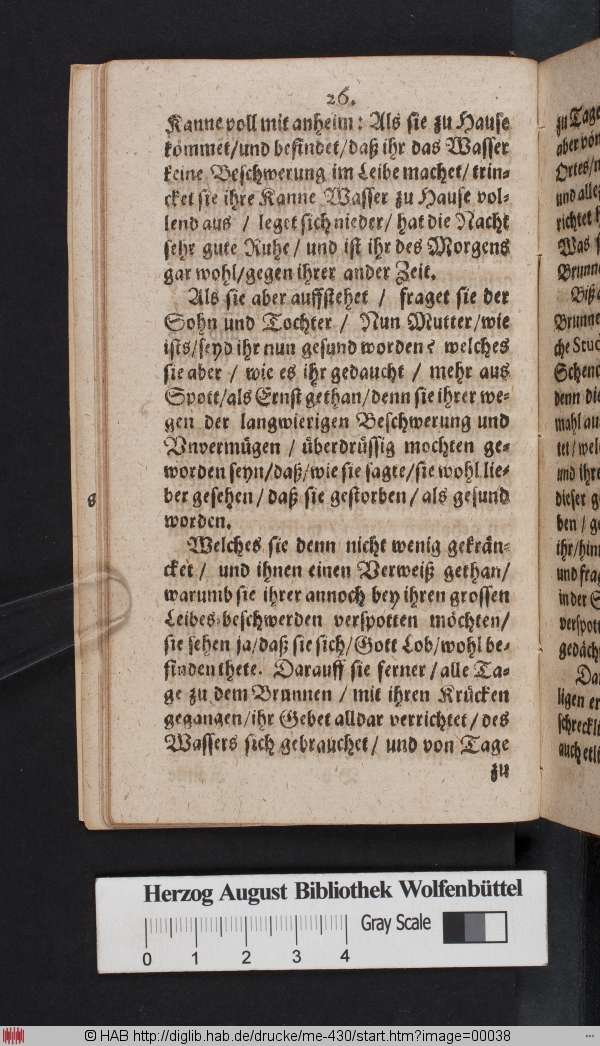 26.
Kanne voll mit anheim: Als sie zu Hause
kommet/und befindet/daß ihr das Wasser
keine Beschwerung im Leibe machet/ trin-
cket sie ihre Kanne Wasser zu Hause vol-
lend aus / leget sich nieder/ hat die Nacht
sehr gute Ruhe/ und ist ihr des Morgens
gar wohl/gegen ihrer ander Zeit.
Als sie aber auffstehet / fraget sie der
Sohn und Tochter / Nun Mutter/wie
ists/seyd ihr nun gesund worden? welches
sie aber / wie es ihr gedaucht / mehr aus
Spott/als Ernst gethan/denn sie ihrer we-
gen der langwierigen Beschwerung und
Vnvermügen / überdrüssig mochten ge-
worden seyn/daß/wie sie sagte/sie wohl lie-
ber gesehen/ daß sie gestorben/ als gesund
worden.
Welches sie denn nicht wenig gekrän-
cket / und ihnen einen Verweiß gethan/
warumb sie ihrer annoch bey ihren grossen
Leibes-beschwerden verspotten möchten/
sie sehen ja/daß sie sich/Gott Lob/wohl be-
finden thete. Darauff sie ferner/ alle Ta-
ge zu dem Brunnen / mit ihren Krücken
gegangen/ihr Gebet alldar verrichtet/ des
Wassers sich gebrauchet/ und von Tage
zu
8
zu Tage
aber von
Ortes/
und alle
richtet
Was
Brunne
Biß
Brunne
che
denn die
mahl
und ihre
dieser
ben / ge
ihr/
und frag
in der
verspott
gedäch
Da
ligen
schreckli
auch etli
Herzog August Bibliothek Wolfenbüttel
Gray Scale
0 1 2 3 4
© HAB http://diglib.hab.de/drucke/me-430/start.htm?image=00038